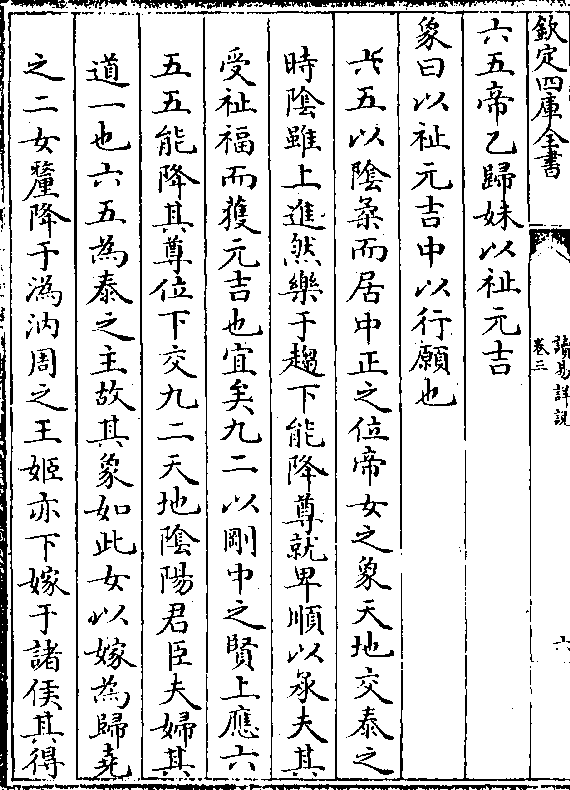 欽定四庫全書
讀易詳說
卷三
六
六五帝乙歸妹以祉元吉
象曰以祉元吉中以行願也
六五以陰柔而居中正之位帝女之象天地交泰之
時陰雖上進然樂于趨下能降尊就卑順以承夫其
受祉福而獲元吉也宜矣九二以剛中之賢上應六
五五能降其尊位下交九二天地陰陽君臣夫婦其
道一也六五為泰之主故其象如此女以嫁為歸堯
之二女釐降于溈汭周之王姬亦下嫁于諸侯其得